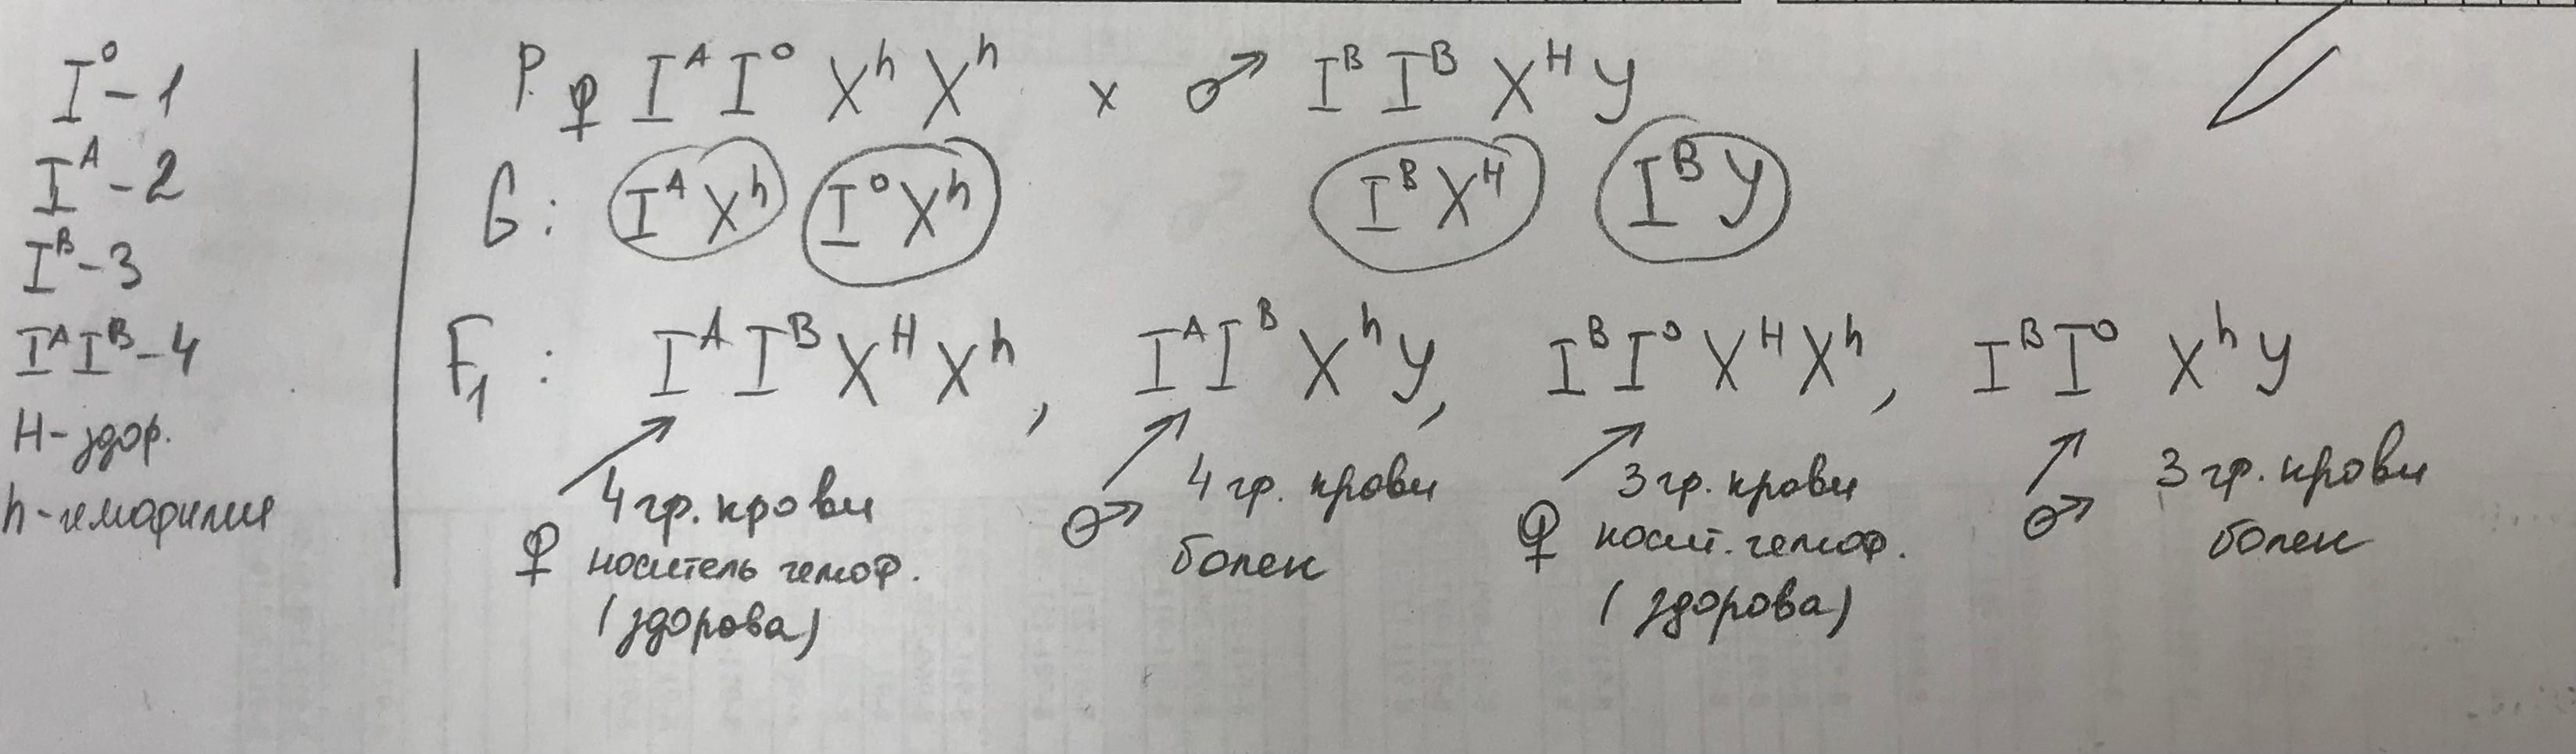 I⁰ - 1
Iᴬ - 2
Iᴮ - 3
IᴬIᴮ - 4
H - здор.
h - гемофилия
P. ♀ Iᴬ I⁰ Xʰ Xʰ x ♂ Iᴮ Iᴮ Xᴴ У
G: IᴬXʰ I⁰Xʰ IᴮXᴴ IᴮУ
F₁: IᴬIᴮXᴴXʰ, IᴬIᴮXʰУ, IᴮI⁰XᴴXʰ, IᴮI⁰ XʰУ
♀ 4 гр. крови
носитель гемоф.
(здорова)
♂ 4 гр. крови
болен
♀ 3 гр. крови
носит. гемоф.
(здорова)
♂ 3 гр. крови
болен